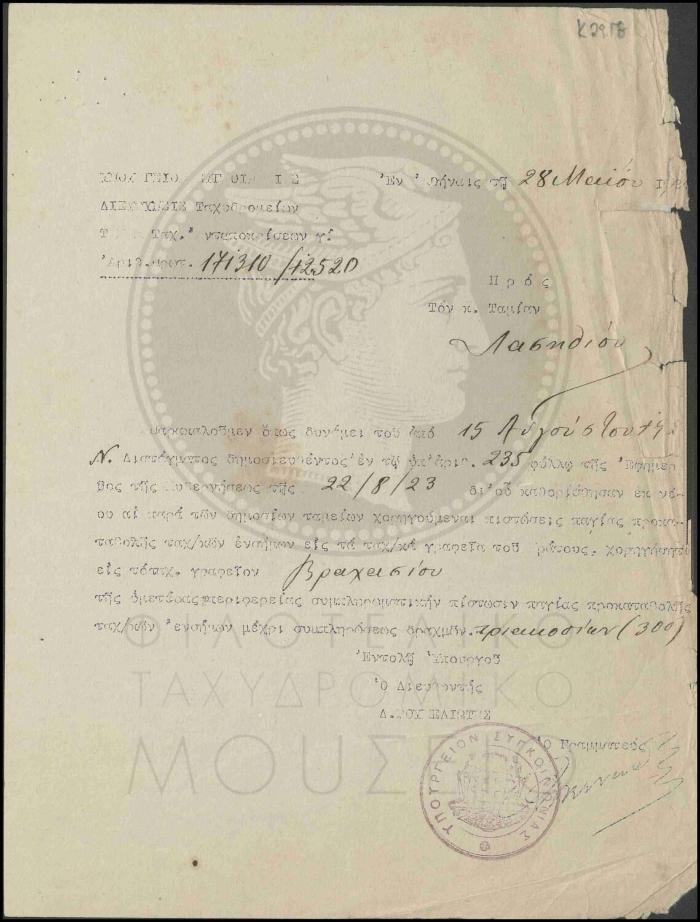 Κ2958
ΔΙΕΥΘΥΝΣΙΣ Ταχυδρομείων
Ἐν Ἀθήναις τῇ 28 Μαΐου
Ἀριθ.πρωτ. 171310/12520
Πρός
Τόν κ. Ταμίαν
Λασηθίου
ὅπως δυνάμει τοῦ ἀπό 15 Αὐγούστου
Ν. Διατάγματος δημοσιευθέντος ἐν τῷ ὑπ'ἀριθ. 235 φύλλῳ τῆς Ἐφημερί
δος τῆς Κυβερνήσεως τῆς 22/8/23 δι'οὗ καθωρίσθησαν ἐκ νέ-
ου αἱ παρά τῶν δημοσίων ταμείων χορηγούμεναι πιστώσεις παγίας προκα-
ταβολῆς ταχ/κῶν ἐνσήμων εἰς τά ταχ/κά γραφεῖα τοῦ Κράτους, χορηγήσητε
εἰς τό τηλ. γραφεῖον Βραχασίου
τῆς ὑμετέρας περιφερείας συμπληρωματικήν πίστωσιν παγίας προκαταβολῆς
ταχ/κῶν ἐνσήμων μέχρι συμπληρώσεως δραχμῶν τριακοσίων (300)
Ἐντολῇ Ὑπουργοῦ
Ὁ Διευθυντής
Ὁ Γραμματεύς
ΥΠΟΥΡΓΕΙΟΝ ΣΥΓΚΟΙΝΩΝΙΑΣ
ΦΙΛΟΤΕΛΙΚΟ
ΤΑΧΥΔΡΟΜΙΚΟ
ΜΟΥΣΕΙΟ